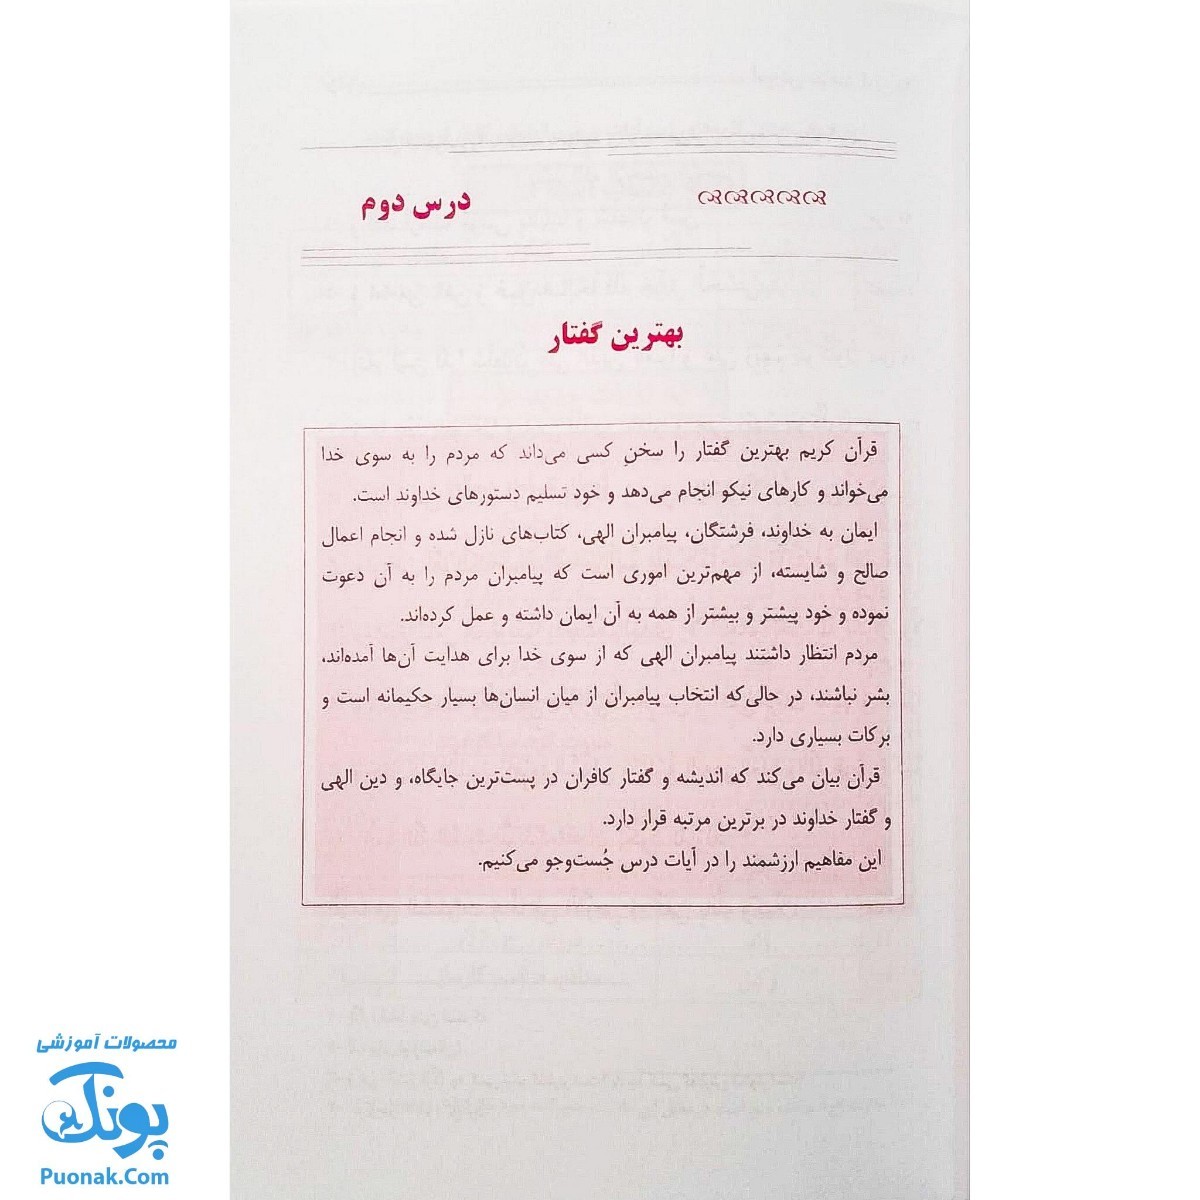 درس دوم
بهترین گفتار
قرآن کریم بهترین گفتار را سخنِ کسی می‌داند که مردم را به سوی خدا
می‌خواند و کارهای نیکو انجام می‌دهد و خود تسلیم دستورهای خداوند است.
ایمان به خداوند، فرشتگان، پیامبران الهی، کتاب‌های نازل شده و انجام اعمال
صالح و شایسته، از مهم‌ترین اموری است که پیامبران مردم را به آن دعوت
نموده و خود پیشتر و بیشتر از همه به آن ایمان داشته و عمل کرده‌اند.
مردم انتظار داشتند پیامبران الهی که از سوی خدا برای هدایت آن‌ها آمده‌اند،
بشر نباشند، در حالی‌که انتخاب پیامبران از میان انسان‌ها بسیار حکیمانه است و
برکات بسیاری دارد.
قرآن بیان می‌کند که اندیشه و گفتار کافران در پست‌ترین جایگاه، و دین الهی
و گفتار خداوند در برترین مرتبه قرار دارد.
این مفاهیم ارزشمند را در آیات درس جُست‌وجو می‌کنیم.
محصولات آموزشی
پونک
Puonak.Com